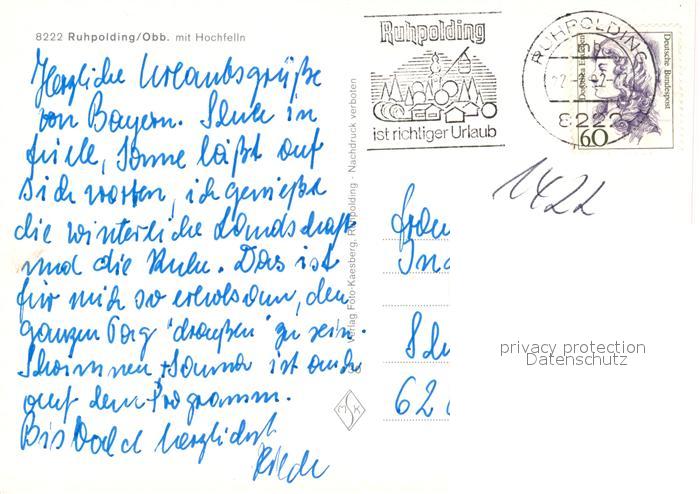 8222 Ruhpolding/Obb. mit Hochfelln
Herzliche Urlaubsgrüße
von Bayern. Schnee in
Fülle, Sonne läßt auf
sich warten, ich genieße
die winterliche Landschaft
und die Ruhe. Das ist
für mich so erholsam, den
ganzen Tag "draußen" zu sein.
Schwimmen + Sauna ist auch
auf dem Programm.
Bis bald herzlichst
Hilde
Verlag Foto-Kaesberg, Ruhpolding - Nachdruck verboten
MSK
Ruhpolding
ist richtiger Urlaub
RUHPOLDING
8222
Deutsche Bundespost
60
1422
Frau
In
Sch
62
privacy protection
Datenschutz